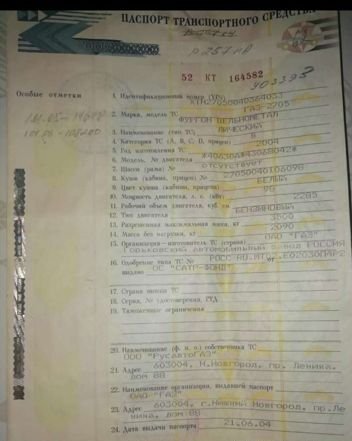 ПАСПОРТ ТРАНСПОРТНОГО СРЕДСТВ
р257
52 КТ 164582
Особые отметки
1. Идентификационный номер (VIN)
2. Марка, модель ТС ГАЗ-2705
ФУРГОН ЦЕЛЬНОМЕТАЛ
3. Наименование (тип ТС) ЛИЧЕСКИЙ
4. Категория ТС (A, B, C, D, прицеп) B
5. Год изготовления ТС 2004
6. Модель, № двигателя
7. Шасси (рама) № отсутствует
8. Кузов (кабина, прицеп) № 27050040106098
9. Цвет кузова (кабины, прицепа) БЕЛЫЙ
10. Мощность двигателя, л. с. (кВт) 98
11. Рабочий объем двигателя, куб. см 2285
12. Тип двигателя БЕНЗИНОВЫЙ
13. Разрешенная максимальная масса, кг 3500
14. Масса без нагрузки, кг 2090
15. Организация-изготовитель ТС (страна) ОАО "ГАЗ"
ГОРЬКОВСКИЙ АВТОМОБИЛЬНЫЙ З-ВОД РОССИЯ
16. Одобрение типа ТС № РОСС от
выдано ОС "САТР-ФОНД"
17. Страна вывоза ТС
18. Серия, № удостоверения, ГТД
19. Таможенные ограничения
20. Наименование (ф. и. о.) собственника ТС
ООО "РусавтоГАЗ"
21. Адрес 603004, Н.Новгород, пр. Ленина,
дом 88
22. Наименование организации, выдавшей паспорт
ОАО "ГАЗ"
23. Адрес 603004, г.Нижний Новгород, пр.Ле
нина, дом 88
24. Дата выдачи паспорта 21.06.04